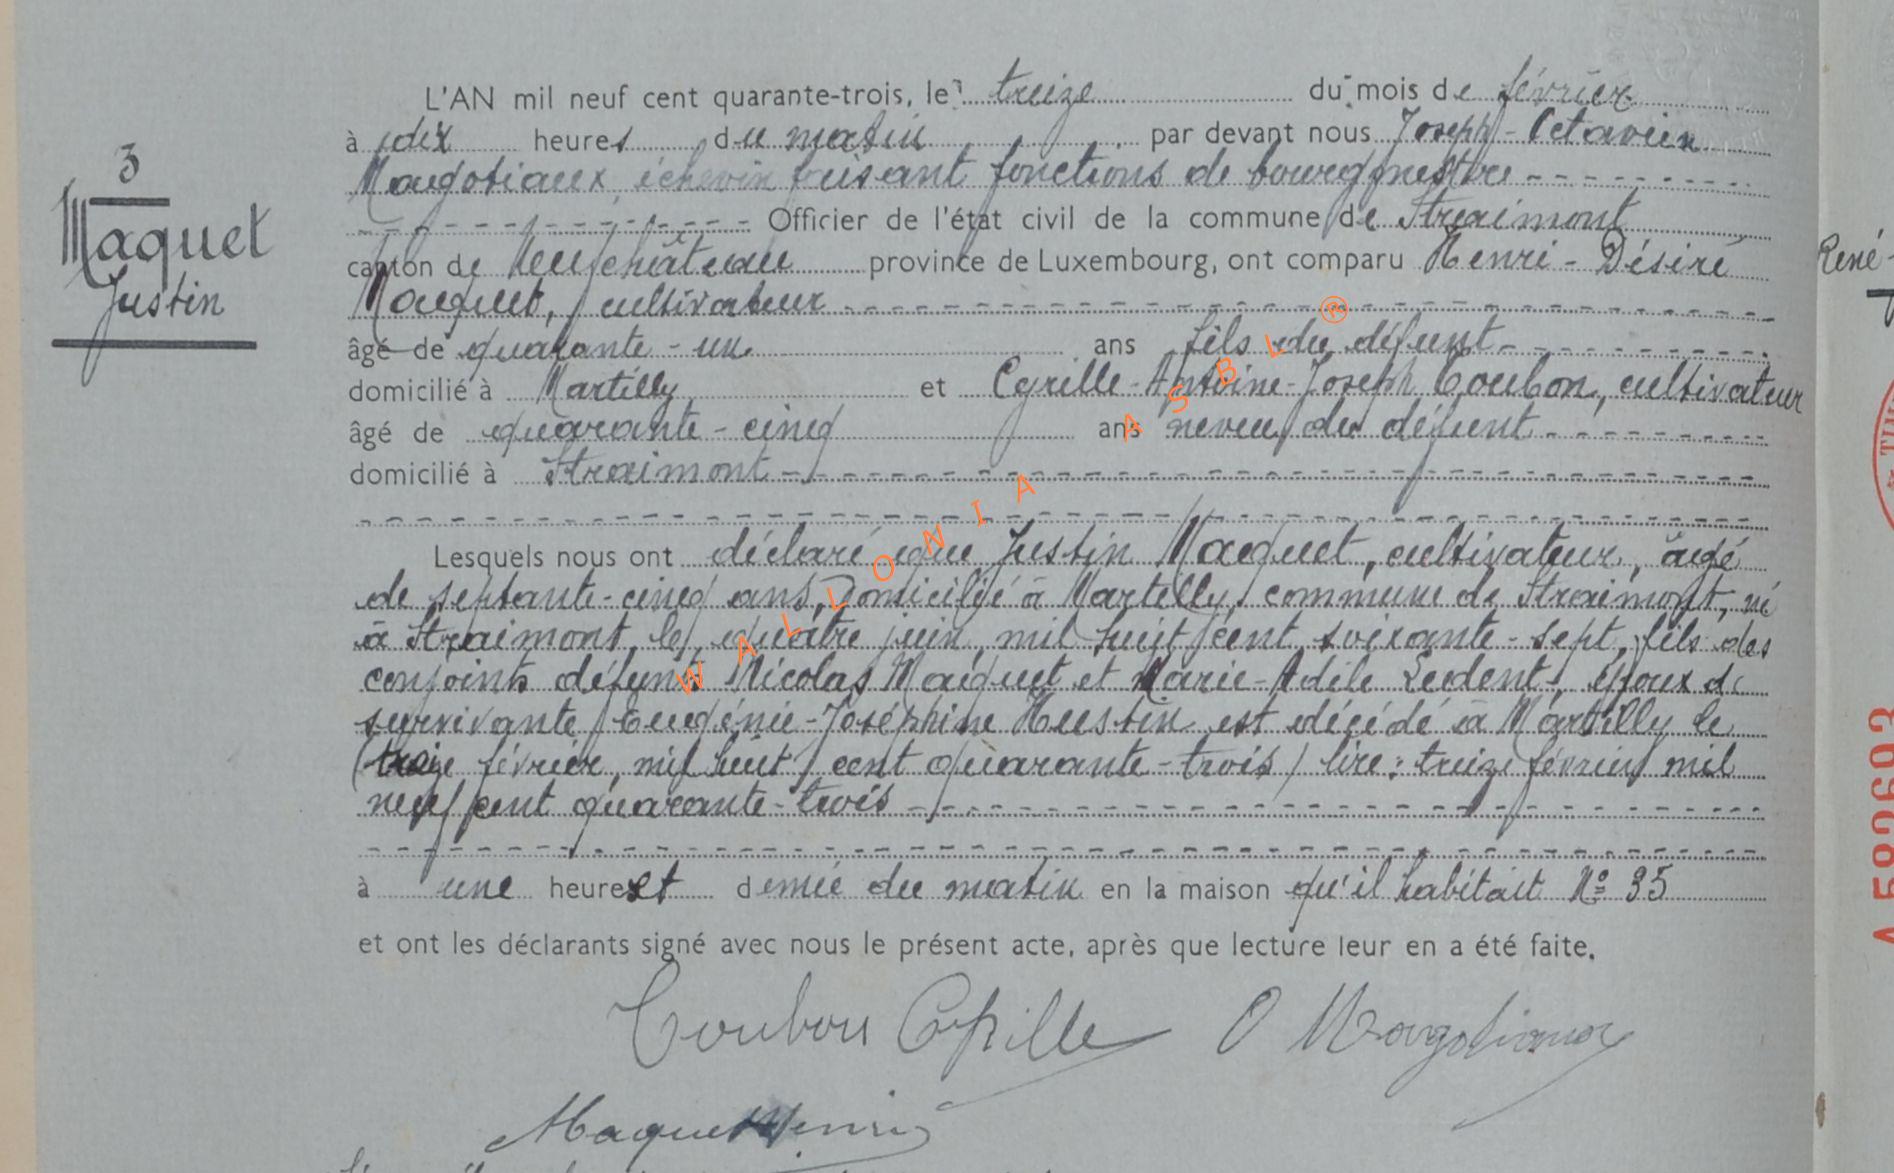 3
Maquet
Justin
L'AN mil neuf cent quarante-trois, le treize du mois de février
à dix heures du matin par devant nous Joseph-Octavien
Maugotiaux échevin faisant fonctions de bourgmestre
Officier de l'état civil de la commune de Straimont
canton de Neufchâteau province de Luxembourg, ont comparu Henri-Désiré
Maquet, cultivateur
âgé de quarante-un ans fils du défunt
domicilié à Martilly et Cyrille-Antoine-Joseph Coubon, cultivateur
âgé de quarante-cinq ans neveu du défunt
domicilié à Straimont
Lesquels nous ont déclaré que Justin Maquet, cultivateur, âgé
de septante-cinq ans, Domicilié à Martilly, commune de Straimont, né
à Straimont, le quatre juin mil huit cent soixante-sept, fils des
conjoints défunts Nicolas Maquet et Marie-Adèle Ledent, époux de
survivante Eugénie-Joséphine Hustin est décédé à Martilly le
(treize février, mil huit cent quarante-trois) lire: treize février mil
neuf cent quarante-trois
à une heure et demie du matin en la maison qu'il habitait N° 35
et ont les déclarants signé avec nous le présent acte, après que lecture leur en a été faite.
Coubon Cyrille O Maugotiaux
Maquet Henri
WALLONIA ASBL ®
René-
A 582693